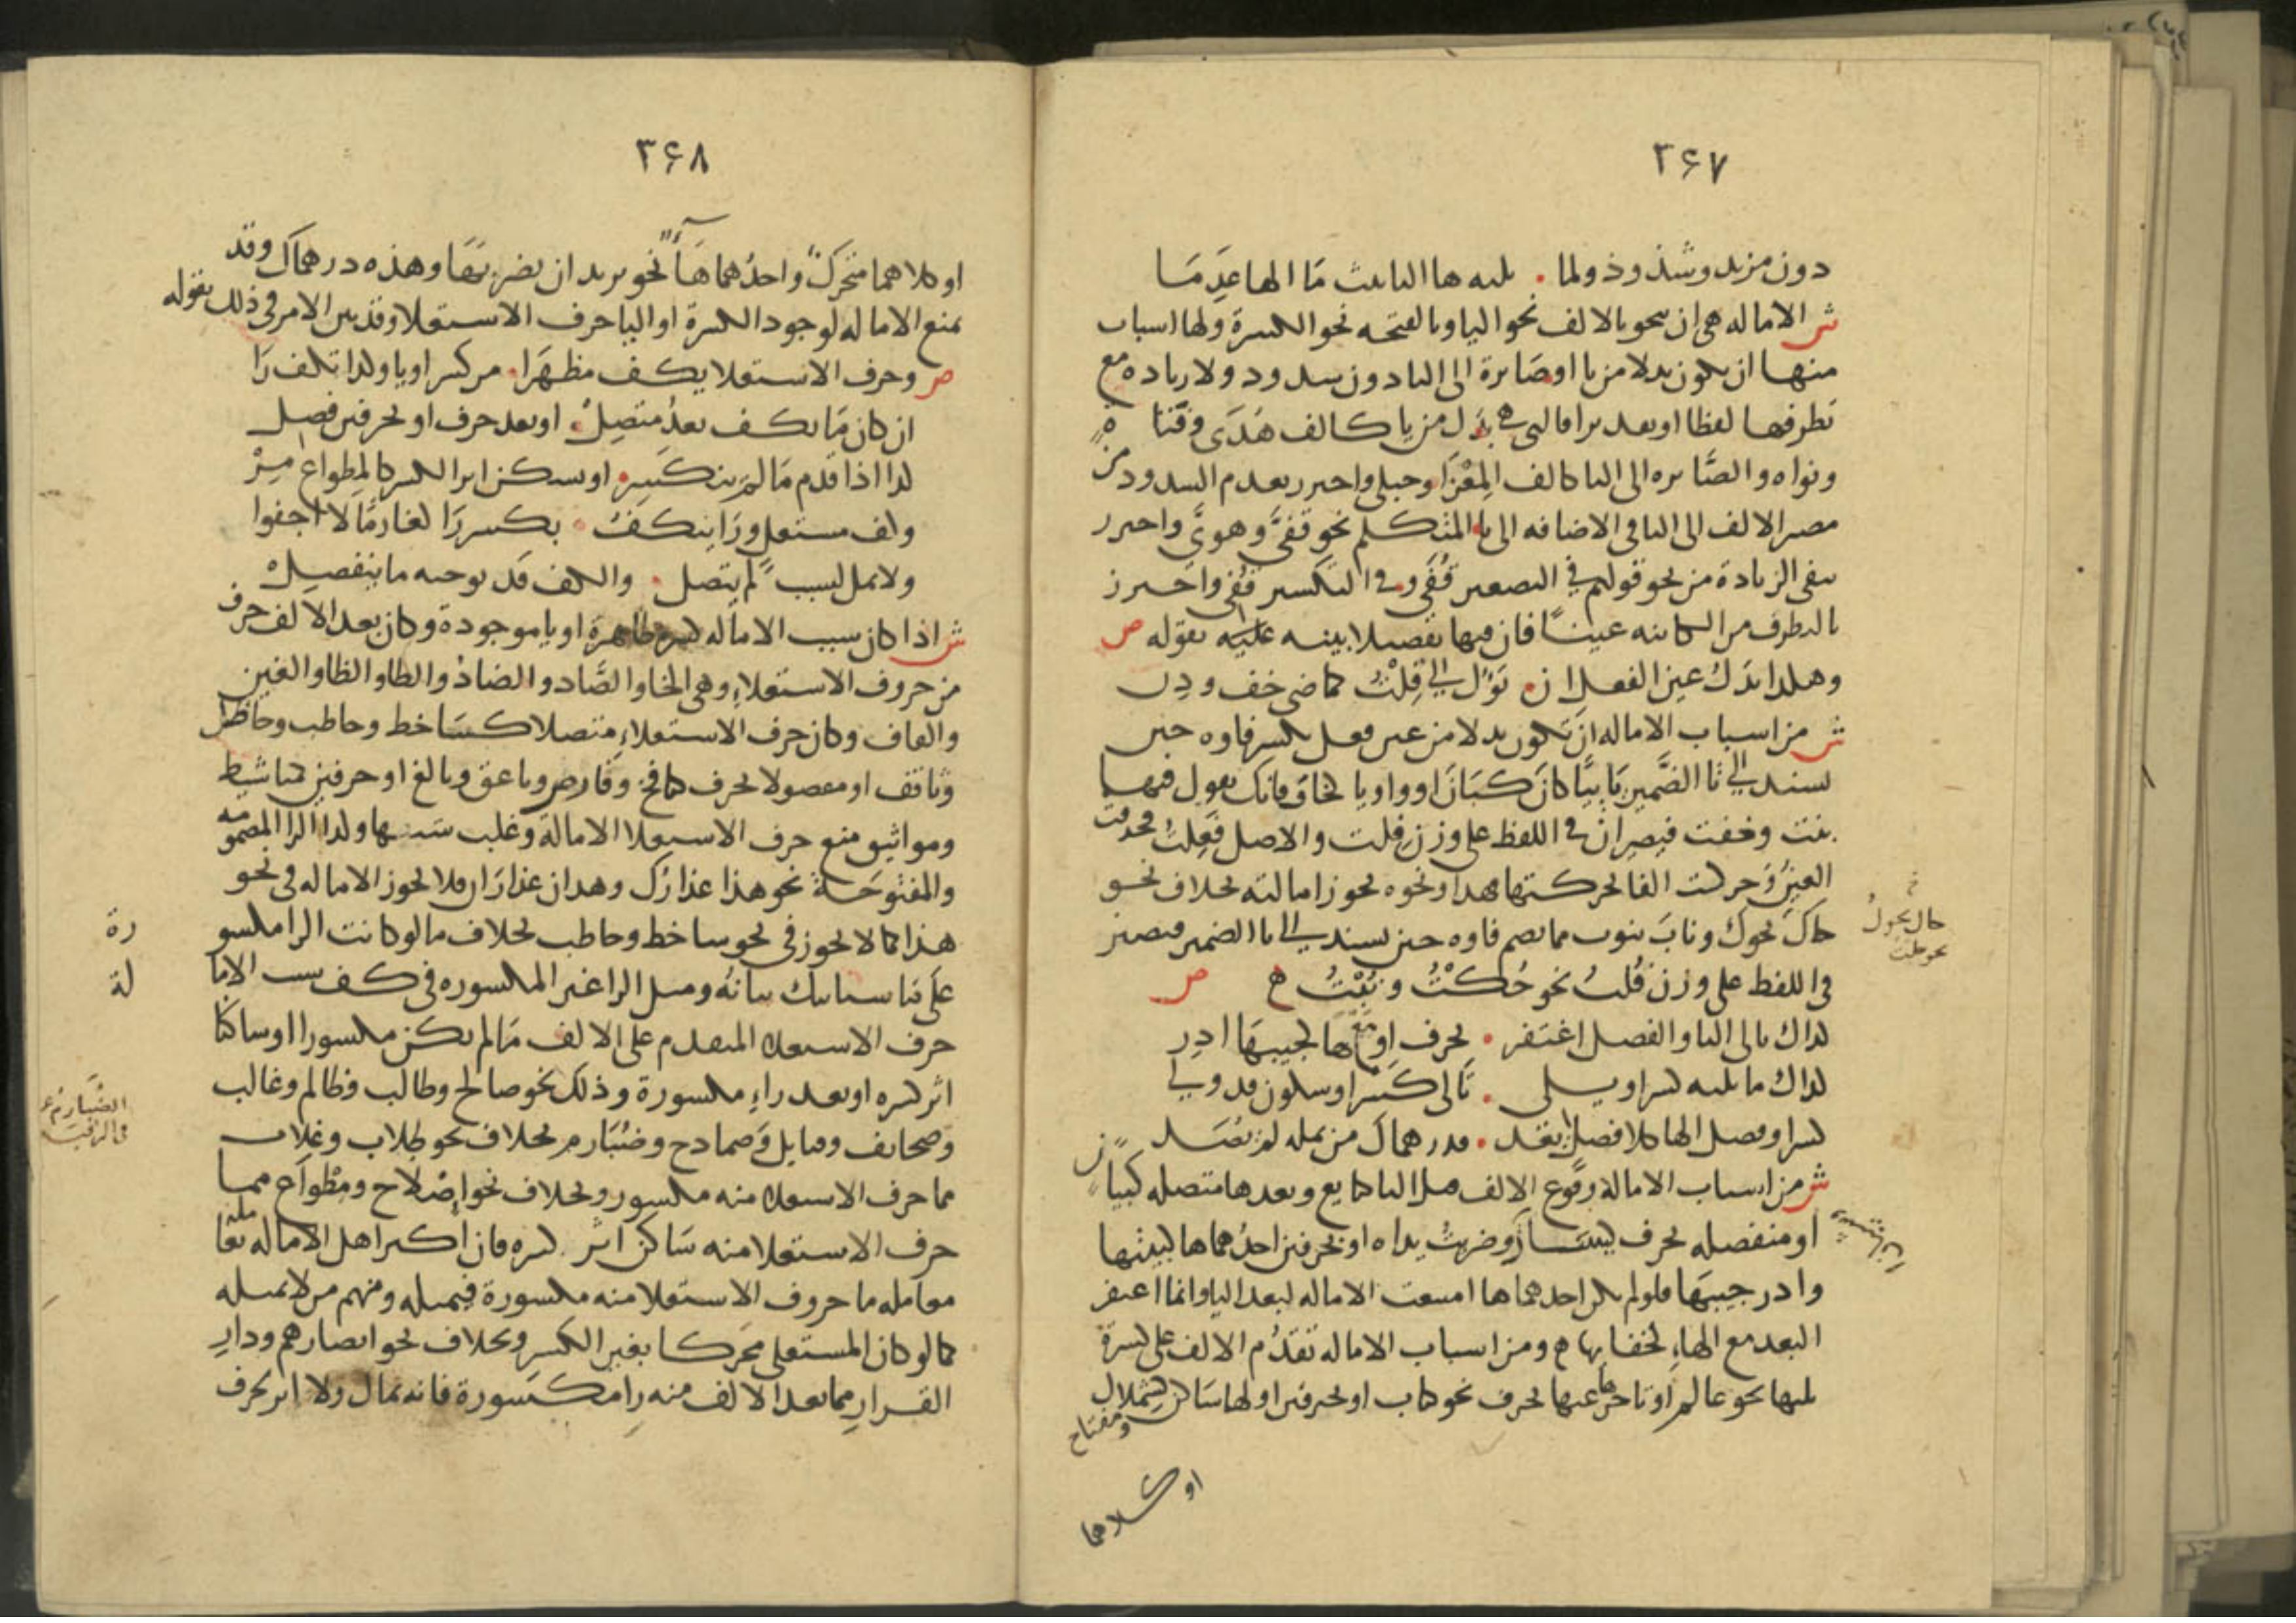 ٢٦٧
دون مزيد وشذوذ ولما . يليه ها التانيث ما الها عدما
ش الاماله هى ان ينحو بالالف نحو اليا وبالفتحه نحو الكسرة ولها اسباب
منها ان تكون بدلا من يا او صايرة الى اليا دون شدود ولا زياده مع
تطرفها لفظا او تقديرا فالتى هى بدل من يا كالف هدى وفتاة
ونواه والصايره الى اليا كالف المغزا وحبلى واحترر بعدم الشدود من
مصير الالف الى اليا فى الاضافه الى يا المتكلم نحو قفيّ وهويّ واحترر
بنفى الزيادة من نحو قولهم فى التصغير قفيّ وفى التكسير قفيّ واحترز
بالتطرف من الكاينه عينا فان فيها تفصيلا بينه عليه بقوله ص
وهكذا بدل عين الفعل ان . يؤل الى فلت كماضى خف ودن
ش من اسباب الاماله ان تكون بدلا من عين فعل تكسر فاوه حين
يسند الى تا الضمير يائيا كان كبان او واويا كخاف فانك تقول فيهما
بنت وخفت فيصيران فى اللفظ على وزن فلت والاصل فعلت فحذفت
العين وحركت الفا بحركتها فهذا ونحوه يجوز امالته بخلاف نحو
حاك يحوك وناب ينوب مما تضم فاوه حين يسند الى تا الضمير فيصير
فى اللفظ على وزن فلت نحو حكت ونبت ه ص
حال يحول
نحو حلت
كذاك تالى اليا والفصل اغتفر . بحرف او مع ها كجيبها ادر
كذاك ما يليه كسر او يلى . تالى كسر او سكون قد ولى
كسرا وفصل الها كلا فصل يعد . فدرهماك من يمله لم يصد
ش من اسباب الامالة وقوع الالف قبل اليا كبايع وبعدها متصله كبيان
او منفصله بحرف كيسار وضربت يداه او بحرفين احدهما ها كبيتها
وادر جيبها فلو لم يكن احدهما ها امتنعت الاماله لبعد اليا وانما اغتفر
البعد مع الهاء لخفايها ه ومن اسباب الاماله تقدم الالف على كسرة
تليها نحو عالم او تاخرها عنها بحرف نحو كتاب او بحرفين اولهما ساكن كشملال
ومفتاح
او كلاهما
٣٦٨
او كلاهما متحرك واحدهما هاء نحو يريد ان يضربها وهذه درهماك وقد
يمنع الاماله لوجود الكسرة او اليا حرف الاستعلا وقد بين الامر فى ذلك بقوله
ص وحرف الاستعلا يكف مظهرا . من كسر او يا وكذا تكف را
ان كان ما يكف بعد متصل . او بعد حرف او بحرفين فصل
كذا اذا قدم ما لم ينكسر . او يسكن اثر الكسر كالمطواع مر
وكف مستعل ورا ينكف . بكسر را كغارما لا اجفوا
ولا تمل لسبب لم يتصل . والكف قد يوجبه ما ينفصل
ش اذا كان سبب الاماله كسرة ظاهرة او يا موجودة وكان بعد الالف حرف
من حروف الاستعلاء وهى الخا والصاد والضاد والطا والظا والغين
والقاف وكان حرف الاستعلاء متصلا كساخط وحاطب وحاظل
وناقف او مفصولا بحرف كنافخ وقارص وناعق وبالغ او حرفين كمناشيط
ومواثيق منع حرف الاستعلا الامالة وغلب سببها وكذا الرا المضمومه
والمفتوحة نحو هذا عذارك وهدان عذاران فلا تجوز الاماله فى نحو
هذا كما لا تجوز فى نحو ساخط وحاطب بخلاف ما لو كانت الرا مكسورة
على ما سياتيك بيانه ومثل الرا غير المكسوره فى كف سبب الامالة
حرف الاستعلاء المتقدم على الالف ما لم يكن مكسورا او ساكنا
اثر كسره او بعد راء مكسورة وذلك نحو صالح وطالب وظالم وغالب
وصحائف وقبايل وصمادح وضبارم بخلاف نحو طلاب وغلاب
مما حرف الاستعلاء منه مكسور وبخلاف نحو اصلاح ومطواع مما
حرف الاستعلا منه ساكن اثر كسره فان اكثر اهل الاماله تعامله
معامله ما حروف الاستعلا منه مكسورة فيميله ومنهم من لا يميله
كما لو كان المستعلى محركا بغير الكسر وبخلاف نحو ابصارهم ودار
القرار مما بعد الالف منه را مكسورة فانه يمال ولا اثر لحرف